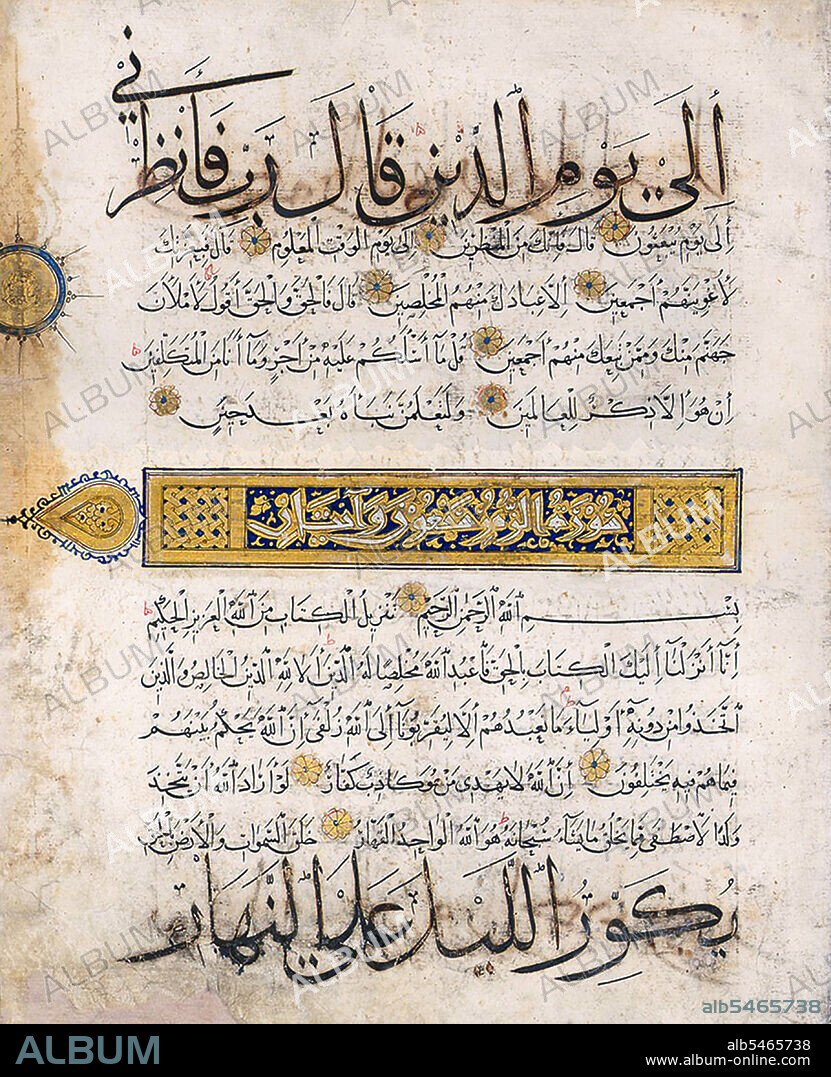 إِلَىٰ يَوْمِ الدِّينِ قَالَ رَبِّ فَأَنْظِرْنِي
إِلَى يَوْمِ يُبْعَثُونَ قَالَ فَإِنَّكَ مِنَ الْمُنْظَرِينَ إِلَى يَوْمِ الْوَقْتِ الْمَعْلُومِ قَالَ فَبِعِزَّتِكَ
لَأُغْوِيَنَّهُمْ أَجْمَعِينَ إِلَّا عِبَادَكَ مِنْهُمُ الْمُخْلَصِينَ قَالَ فَالْحَقُّ وَالْحَقَّ أَقُولُ لَأَمْلَأَنَّ
جَهَنَّمَ مِنْكَ وَمِمَّنْ تَبِعَكَ مِنْهُمْ أَجْمَعِينَ قُلْ مَا أَسْأَلُكُمْ عَلَيْهِ مِنْ أَجْرٍ وَمَا أَنَا مِنَ الْمُتَكَلِّفِينَ
إِنْ هُوَ إِلَّا ذِكْرٌ لِلْعَالَمِينَ وَلَتَعْلَمُنَّ نَبَأَهُ بَعْدَ حِينٍ
سورة الزمر سبعون وآيتان
بِسْمِ اللَّهِ الرَّحْمَٰنِ الرَّحِيمِ تَنْزِيلُ الْكِتَابِ مِنَ اللَّهِ الْعَزِيزِ الْحَكِيمِ
إِنَّا أَنْزَلْنَا إِلَيْكَ الْكِتَابَ بِالْحَقِّ فَاعْبُدِ اللَّهَ مُخْلِصًا لَهُ الدِّينَ أَلَا لِلَّهِ الدِّينُ الْخَالِصُ وَالَّذِينَ
اتَّخَذُوا مِنْ دُونِهِ أَوْلِيَاءَ مَا نَعْبُدُهُمْ إِلَّا لِيُقَرِّبُونَا إِلَى اللَّهِ زُلْفَى إِنَّ اللَّهَ يَحْكُمُ بَيْنَهُمْ
فِيمَا هُمْ فِيهِ يَخْتَلِفُونَ إِنَّ اللَّهَ لَا يَهْدِي مَنْ هُوَ كَاذِبٌ كَفَّارٌ لَوْ أَرَادَ اللَّهُ أَنْ يَتَّخِذَ
وَلَدًا لَاصْطَفَى مِمَّا يَخْلُقُ مَا يَشَاءُ سُبْحَانَهُ هُوَ اللَّهُ الْوَاحِدُ الْقَهَّارُ خَلَقَ السَّمَوَاتِ وَالْأَرْضَ بِالْحَقِّ
يُكَوِّرُ اللَّيْلَ عَلَى النَّهَارِ
alb5465738
ALBUM
alb5465738
www.album-online.com